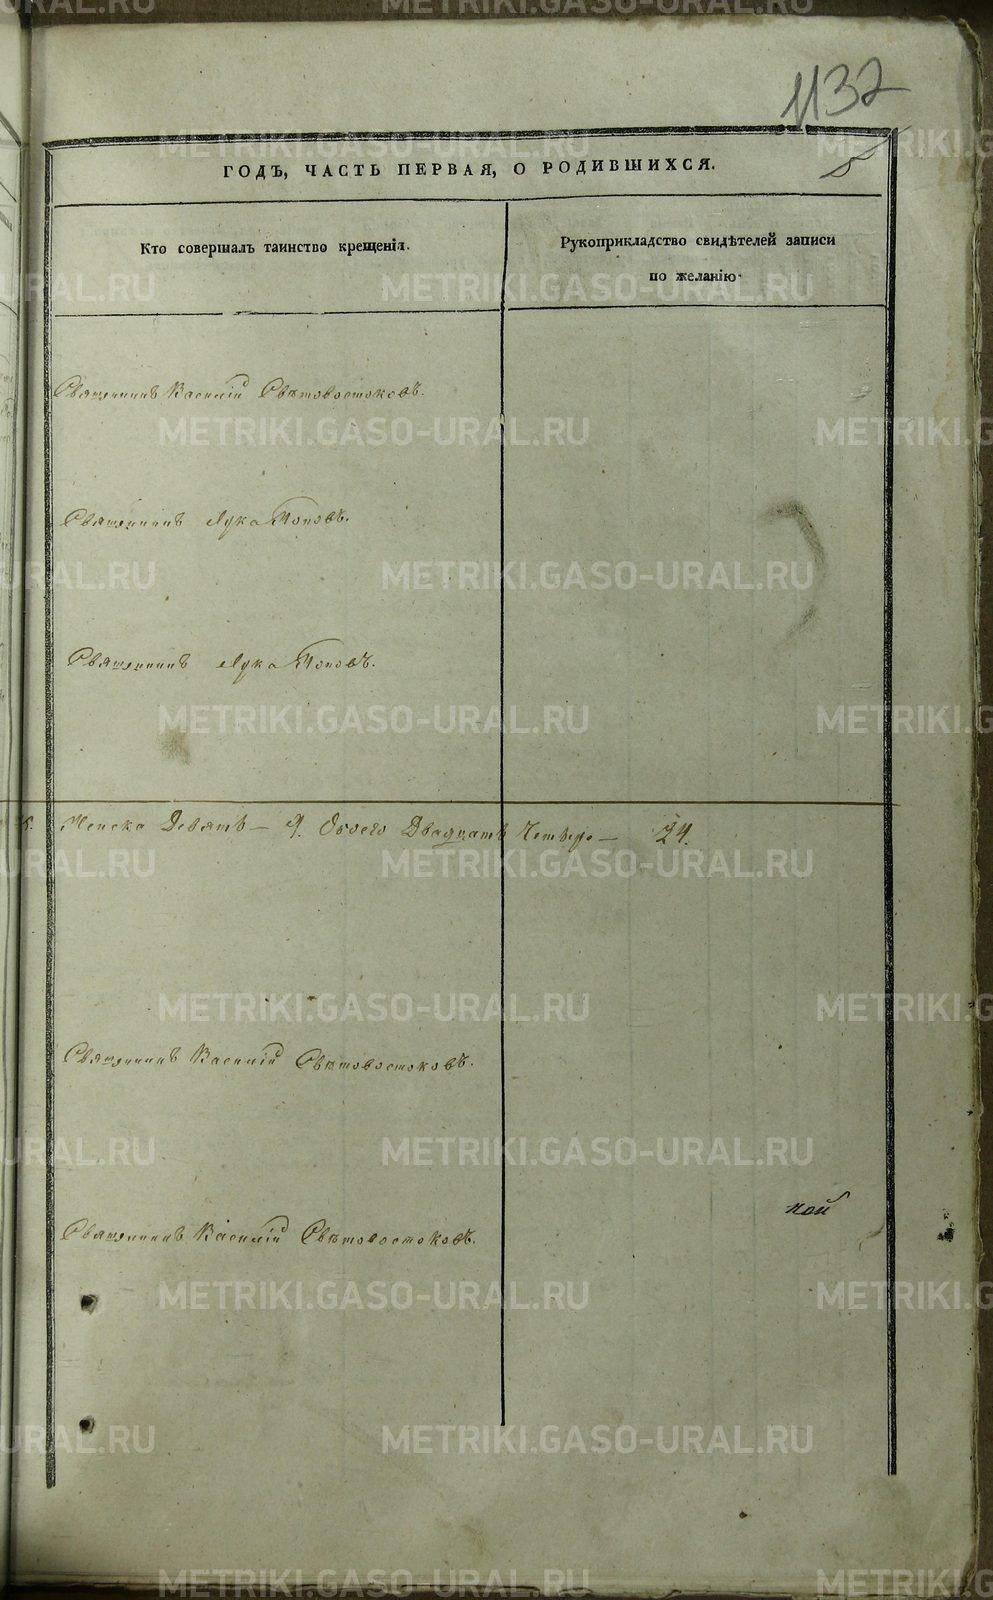 1132
ГОДЪ, ЧАСТЬ ПЕРВАЯ, О РОДИВШИХСЯ.
5
Кто совершалъ таинство крещенія.
Рукоприкладство свидѣтелей записи
по желанію.
Священникъ Василій Свѣтовостоковъ.
Священникъ Лука Поповъ.
Священникъ Лука Поповъ.
Женска Девять — 9. Обоего Двадцать Четыре — 24.
Священникъ Василій Свѣтовостоковъ.
кой
Священникъ Василій Свѣтовостоковъ.
METRIKI.GASO-URAL.RU